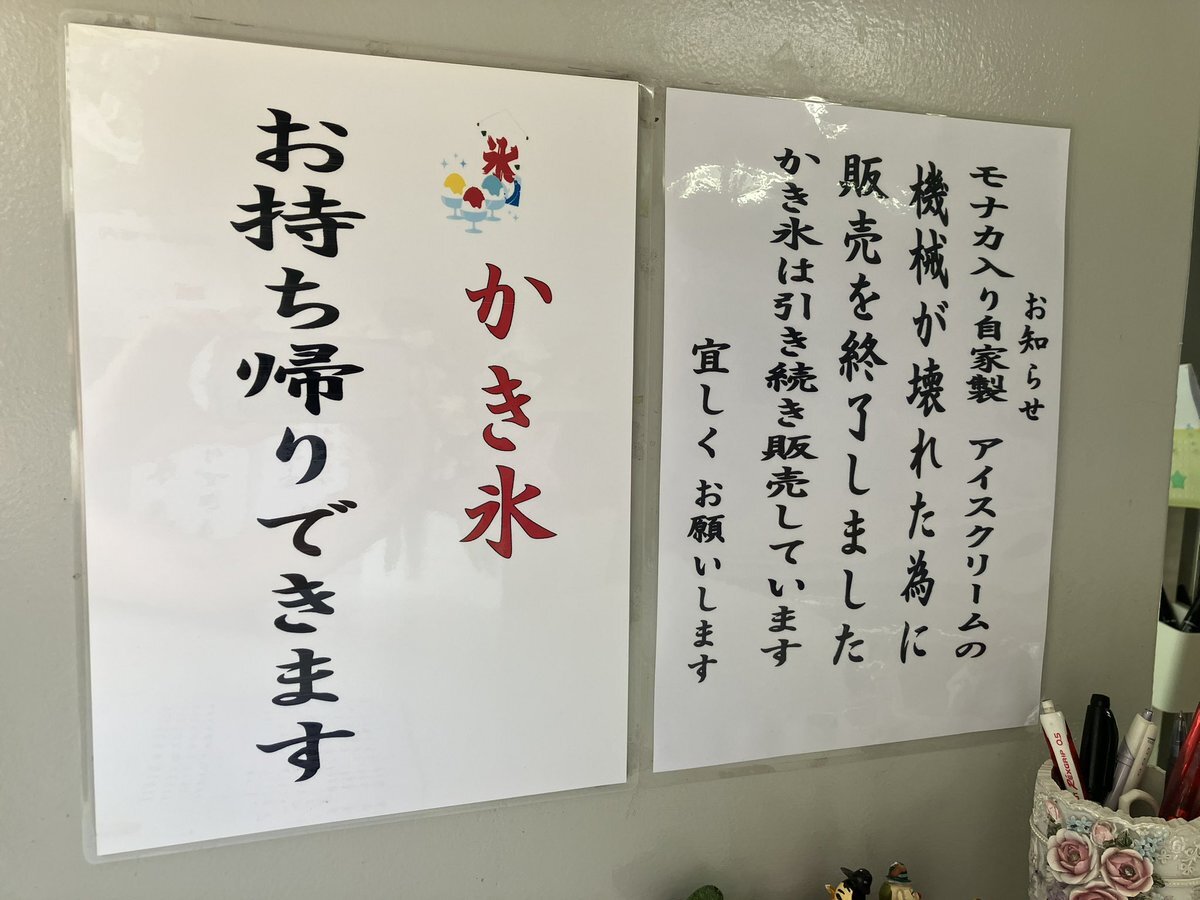 お知らせ
モナカ入り自家製　アイスクリームの
機械が壊れた為に
販売を終了しました
かき氷は引き続き販売しています
宜しく お願いします
氷
かき氷
お持ち帰りできます
FLEXGRIP 0.5